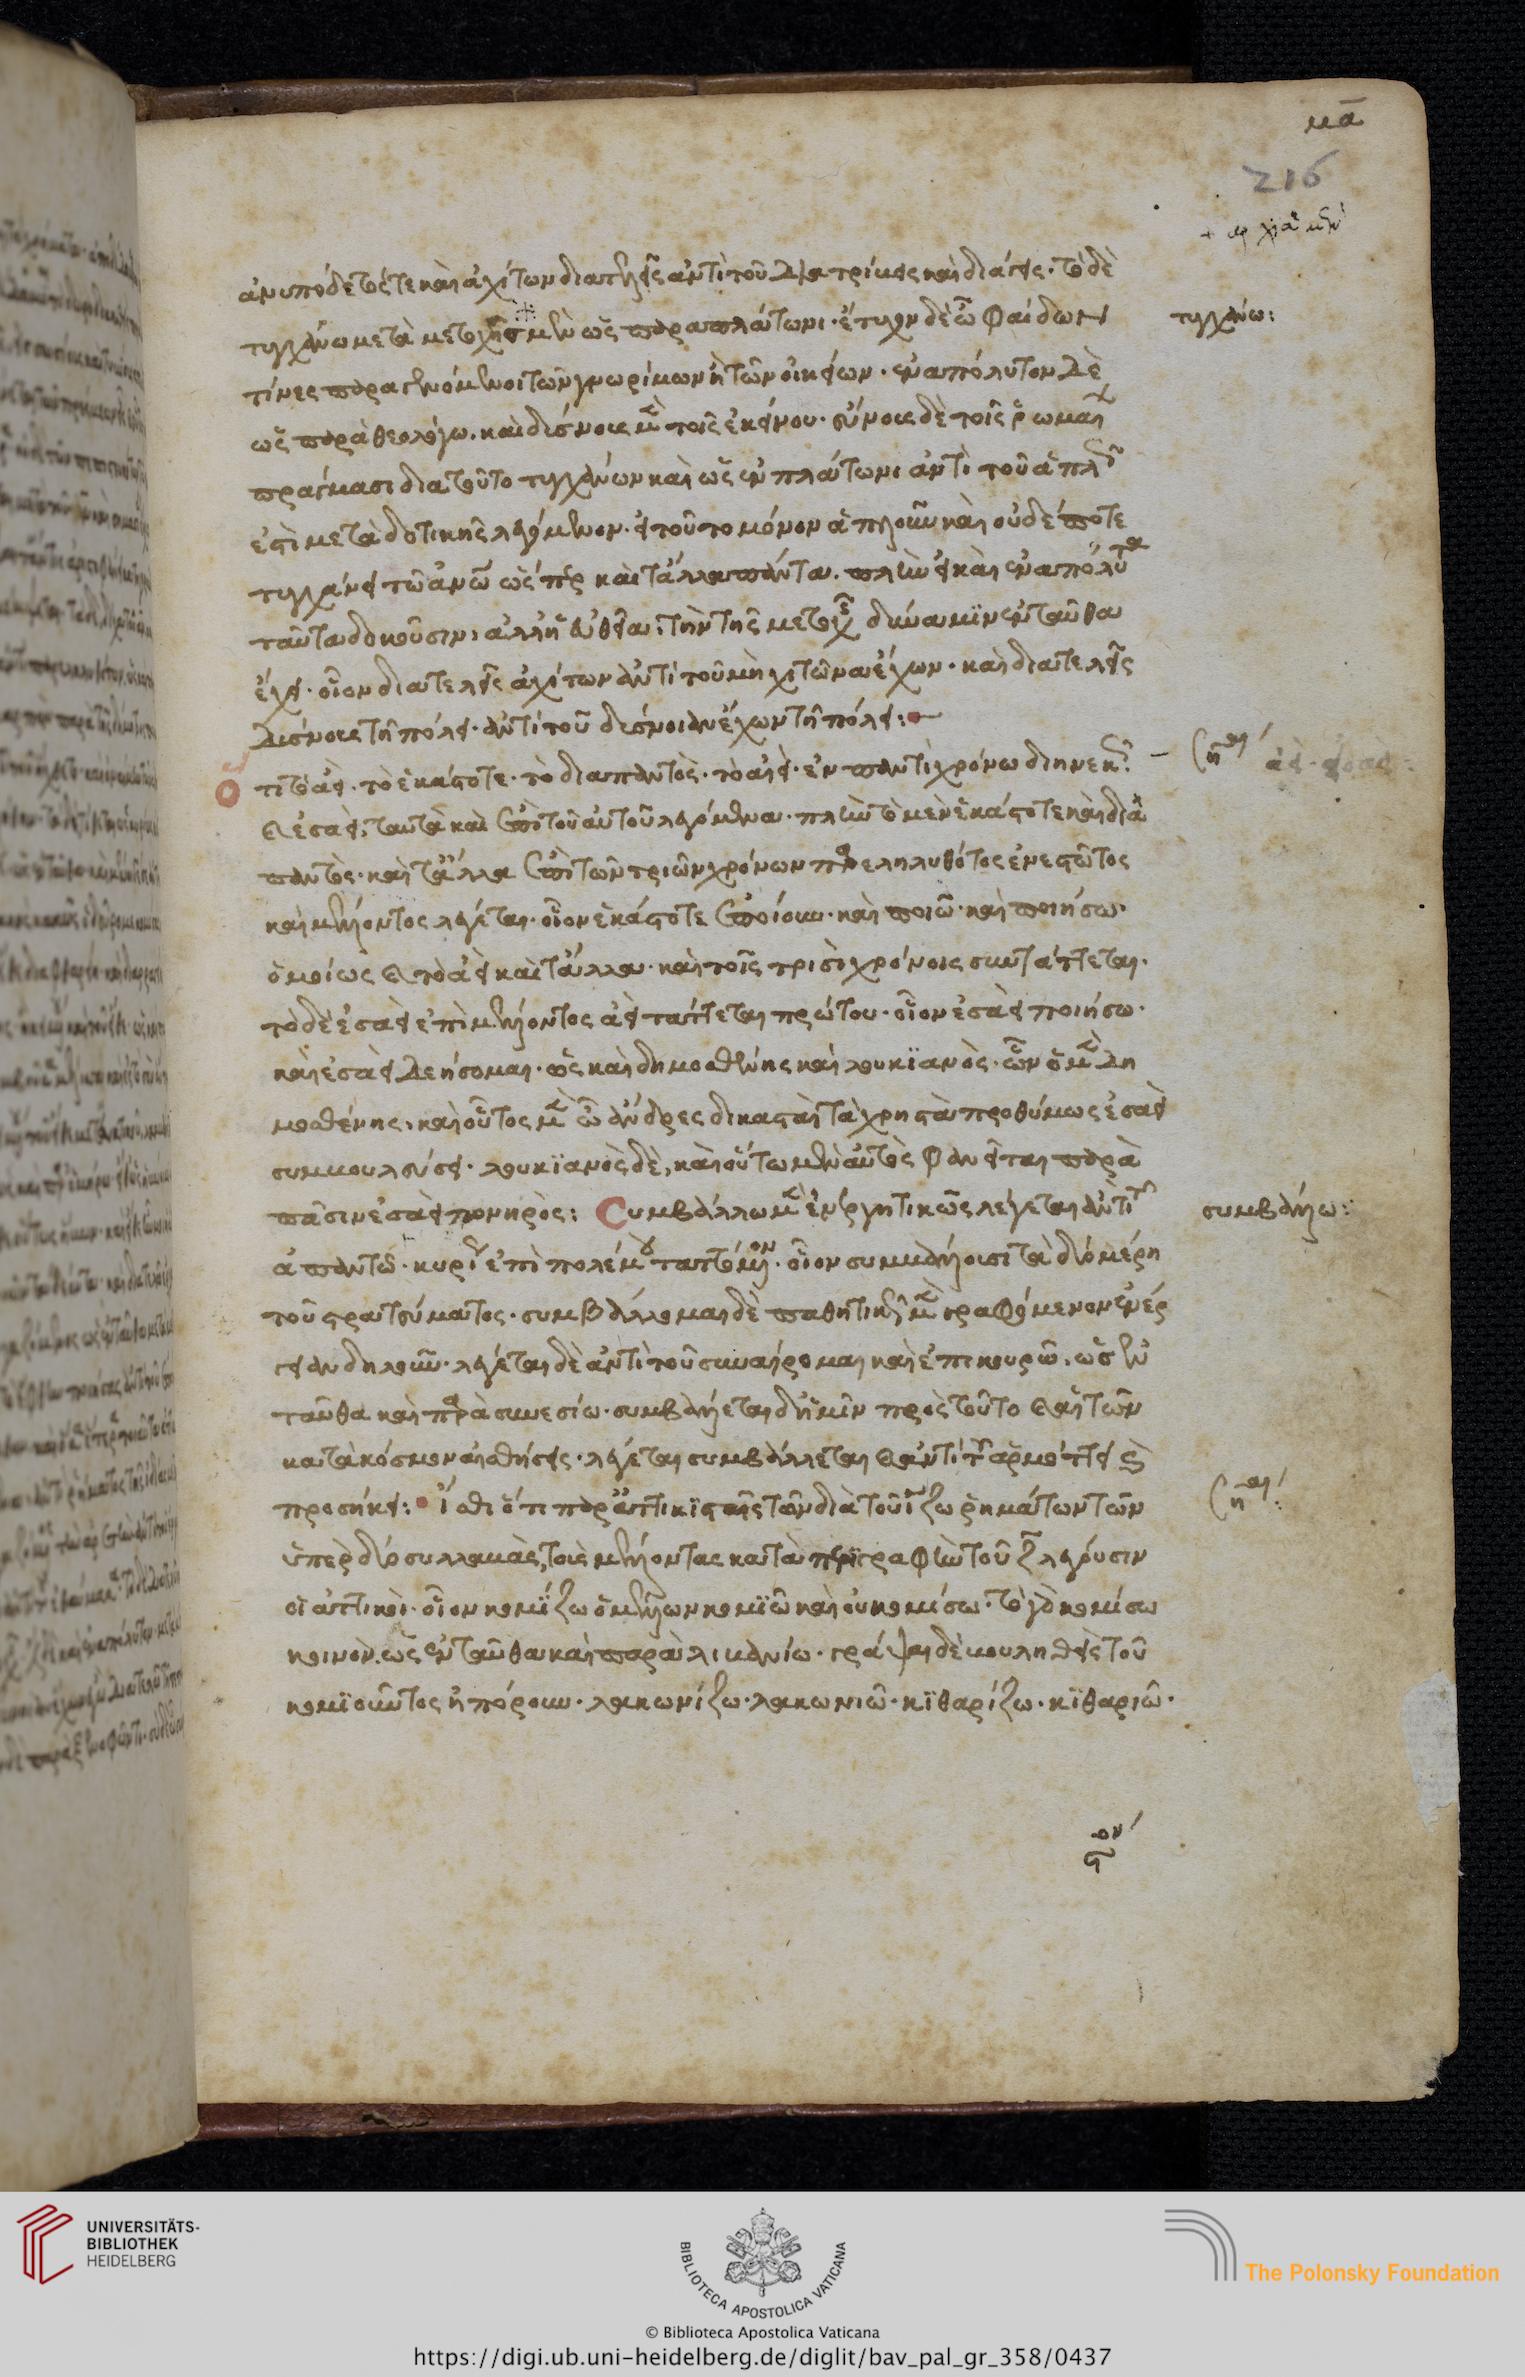 μα
216
ἀνυπόδετός τε καὶ ἀχίτων διατελεῖς ἀντὶ τοῦ διατρίβεις καὶ διάγεις · τὸ δὲ
τυγχάνω μετὰ μετοχῆς μὲν ὡς παρὰ πλάτωνι · ἔτυχον δὲ ὦ φαίδων
τυγχάνω:
τινες παραγενόμενοι τῶν γνωρίμων ἢ τῶν οἰκείων · ἐναπόλυτον δὲ
ὡς παρὰ θεολόγω · καὶ δίσνοις μὲν τοῖς ἐκείνου · εὔνοις δὲ τοῖς ῥωμαϊ
πράγμασι διὰ τοῦτο τυγχάνων καὶ ὡς ἐν πλάτωνι ἀντὶ τοῦ ἁπλῶς
ἐστὶ μετὰ δοτικῆς λεγόμενον · εἰ τοῦτο μόνον ἁπλοῦν καὶ οὐδέποτε
τυγχάνει τῶ ἀνω ὥσπερ καὶ τἄλλα πάντα · πλὴν εἰ καὶ ἐναπόλυτα
ταῦτα δοκοῦσιν · ἀλλ' ἡ εὐθεῖα τὴν τῆς μετοχῆς δύναμιν ἐνταῦθα
ἔχει · οἷον διατελεῖς ἀχίτων ἀντὶ τοῦ μὴ χιτῶνα ἔχων · καὶ διατελεῖς
δίσνοις τῆ πόλει · ἀντὶ τοῦ δίσνοιαν ἔχων τῆ πόλει:
ὅτι τὸ ἀεὶ · τὸ ἑκάστοτε · τὸ διαπαντὸς · τὸ αἰεὶ · ἐν παντὶ χρόνω διηνεκῶς ·
καὶ ἐσαεὶ · ταυτὰ καὶ ἐπὶ τοῦ αὐτοῦ λεγόμενα · πλὴν τὸ μὲν ἑκάστοτε καὶ διὰ
παντὸς · καὶ τἄλλα ἐπὶ τῶν τριῶν χρόνων παρεληλυθότος ἐνεστῶτος
καὶ μέλλοντος λέγεται · οἷον ἑκάστοτε ἐποίουν · καὶ ποιῶ · καὶ ποιήσω ·
ὁμοίως καὶ τὸ ἀεὶ καὶ τἄλλα · καὶ τοῖς τρισὶ χρόνοις συντάττεται ·
τὸ δὲ ἐσαεὶ ἐπὶ μέλλοντος ἀεὶ τάττεται πρώτου · οἷον ἐσαεὶ ποιήσω ·
καὶ ἐσαεὶ δεήσομαι · ὡς καὶ δημοσθένης καὶ λουκϊανὸς · ὧν ὁ μὲν δη
μοσθένης · καὶ οὗτος μὲν ὦ ἄνδρες δικασταὶ τὰ χρηστὰ προθύμως ἐσαεὶ
συμβουλεύσει · λουκϊανὸς δὲ, καὶ οὕτω μὲν αὐτὸς φανεῖται παρὰ
πᾶσιν ἐσαεὶ πονηρὸς: Συμβάλλω μὲν ἐνεργητικῶς λέγεται ἀντὶ τοῦ
συμβάλλω:
ἀπαντῶ · κυρίως ἐπὶ πολέμου ταττόμενον · οἷον συμβάλλουσι τὰ δύο μέρη
τοῦ στρατεύματος · συμβάλλομαι δὲ παθητικῶς μὲν γραφόμενον ἐνέρ
γειαν δηλοῦν · λέγεται δὲ ἀντὶ τοῦ συναίρομαι καὶ ἐπικουρῶ · ὡς ἐν
ταῦθα καὶ παρὰ συνεσίω · συμβάλλεται δ' ἡμῖν πρὸς τοῦτο καὶ ἡ τῶν
κατὰ κόσμον αἴσθησις · λέγεται συμβάλλεται καὶ ἀντὶ τοῦ ἁρμόττει καὶ
προσήκει: ἴσθι ὅτι παρ' ἀττικϊσταῖς τῶν διὰ τοῦ ΐζω ῥημάτων τῶν
ὑπὲρ δύο συλλαβὰς, τοὺς μέλλοντας κατὰ περιγραφὴν τοῦ ζ λέγουσιν
οἱ ἀττικοὶ · οἷον κομΐζω ὁ μέλλων κομϊῶ καὶ οὐ κομίσω · τὸ γὰρ κομίσω
κοινὸν, ὡς ἐνταῦθα καὶ παρὰ λιβανίω · γράψαι δὲ βουληθεὶς τοῦ
κομϊοῦντος ἠπόρουν · λακωνίζω · λακωνιῶ · κϊθαρίζω · κϊθαριῶ ·
UNIVERSITÄTS-
BIBLIOTHEK
HEIDELBERG
BIBLIOTECA APOSTOLICA VATICANA
The Polonsky Foundation
© Biblioteca Apostolica Vaticana
https://digi.ub.uni-heidelberg.de/diglit/bav_pal_gr_358/0437